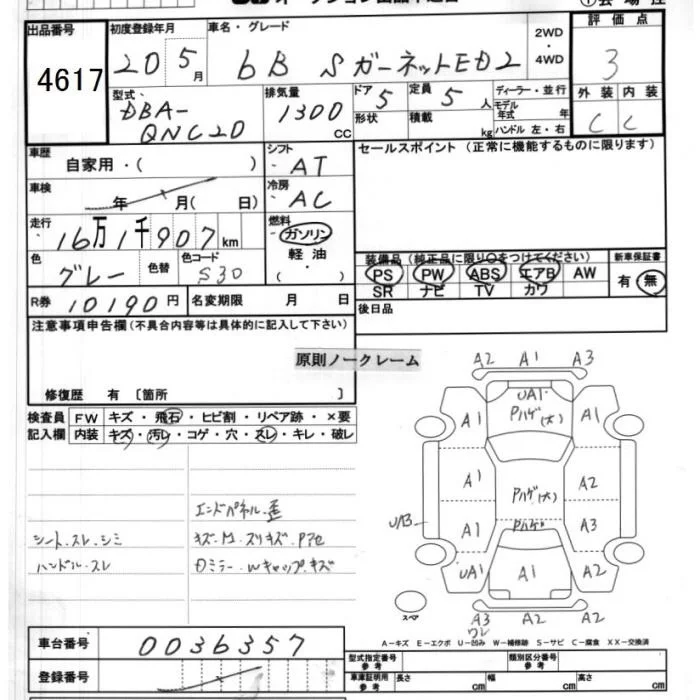 出品番号
4617
初度登録年月
20 5月
車名・グレード
bB Sガーネット ED2
2WD
・
4WD
評価点
3
外装 内装
C C
型式
DBA-
QNC20
排気量
1300
CC
ドア 5
形状
定員 5 人
積載 kg
ディーラー・並行
モデル
年式 年
ハンドル 左・右
車歴
自家用・( )
シフト
AT
セールスポイント (正常に機能するものに限ります)
車検
年 月( 日)
冷房
AC
走行
16万1千907km
燃料
ガソリン
軽油
( ・ )
色
グレー
色替
色コード
S30
装備品 (純正品に限り○をつけてください)
PS PW ABS エアB AW
SR ナビ TV カワ
新車保証書
有 無
R券 10190円
名変期限 月 日
後日品
注意事項申告欄(不具合内容等は具体的に記入して下さい)
原則ノークレーム
修復歴 有〔箇所 〕
検査員
記入欄
FW キズ・飛石・ヒビ割・リペア跡・×要
内装 キズ・汚レ・コゲ・穴・スレ・キレ・破レ
エンドパネル歪
シート.スレ.シミ
ハンドル.スレ
Dミラー.Wキャップ.キズ
A2 A1 A3
UA1
Pハゲ(大)
A1 A1
A1 A2
Pハゲ(大)
A1 A3
Pハゲ
UA3
UA1 A1 A2
A3 A2 A2
ワレ
スペア
A-キズ E-エクボ U-凹み W-補修跡 S-サビ C-腐食 XX-交換済
車台番号
0036357
登録番号
型式指定番号
参考
類別区分番号
参考
車庫証明用
参考
長さ cm
幅 cm
高さ cm